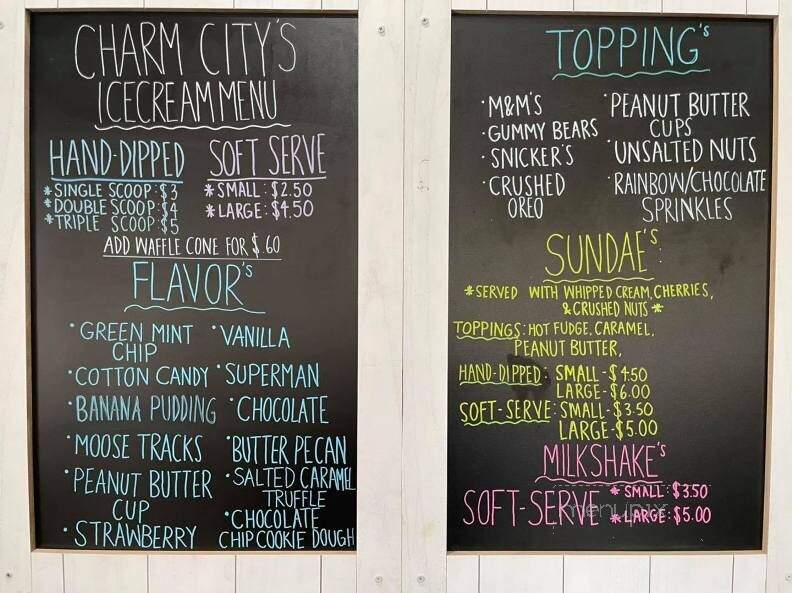 CHARM CITY'S
ICECREAM MENU
HAND-DIPPED
* SINGLE SCOOP: $3
* DOUBLE SCOOP: $4
* TRIPLE SCOOP: $5
SOFT SERVE
* SMALL: $2.50
* LARGE: $4.50
ADD WAFFLE CONE FOR $.60
FLAVOR'S
• GREEN MINT
CHIP
• COTTON CANDY
• BANANA PUDDING
• MOOSE TRACKS
• PEANUT BUTTER
CUP
• STRAWBERRY
• VANILLA
• SUPERMAN
• CHOCOLATE
• BUTTER PECAN
• SALTED CARAMEL
TRUFFLE
• CHOCOLATE
CHIP COOKIE DOUGH
TOPPING'S
• M&M'S
• GUMMY BEARS
• SNICKER'S
• CRUSHED
OREO
• PEANUT BUTTER
CUPS
• UNSALTED NUTS
• RAINBOW/CHOCOLATE
SPRINKLES
SUNDAE'S
* SERVED WITH WHIPPED CREAM, CHERRIES,
& CRUSHED NUTS *
TOPPINGS: HOT FUDGE, CARAMEL,
PEANUT BUTTER,
HAND-DIPPED: SMALL - $4.50
LARGE - $6.00
SOFT-SERVE: SMALL - $3.50
LARGE - $5.00
MILKSHAKE'S
SOFT-SERVE * SMALL: $3.50
* LARGE: $5.00
menupix